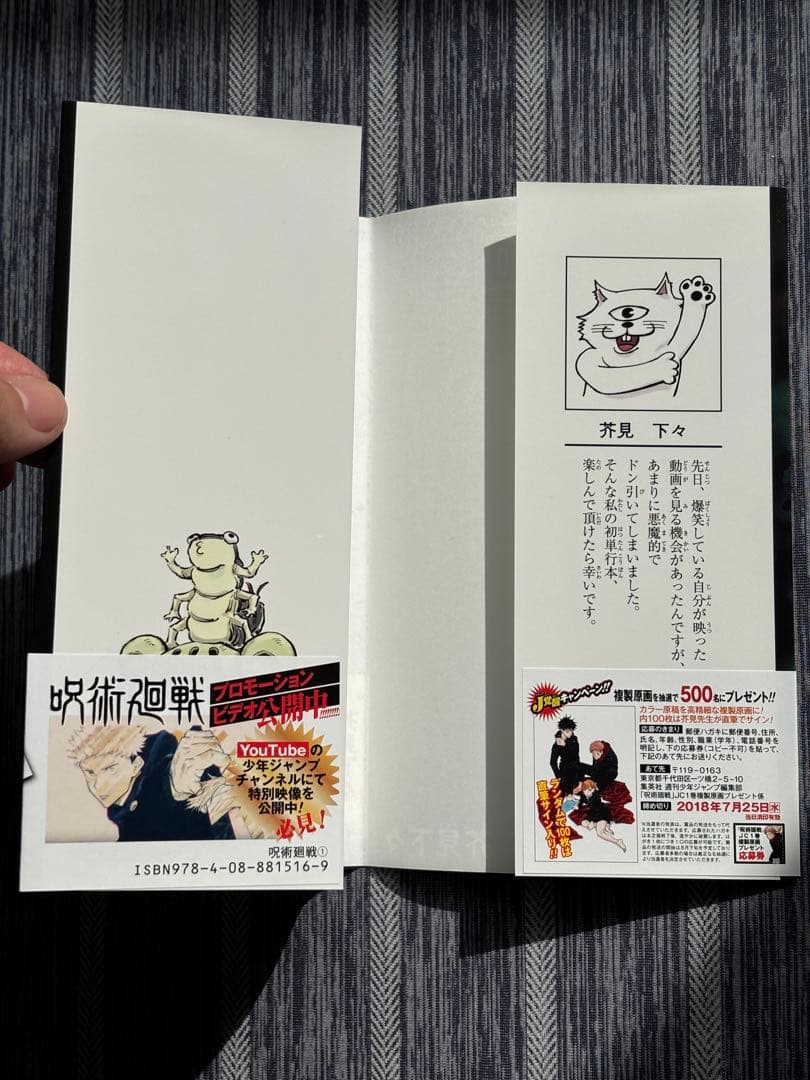 芥見 下々
先日、爆笑している自分が映った
動画を見る機会があったんですが、
あまりに悪魔的で
ドン引いてしまいました。
そんな私の初単行本、
楽しんで頂けたら幸いです。
呪術廻戦
プロモーション
ビデオ公開中!!!!!!!
YouTubeの
少年ジャンプ
チャンネルにて
特別映像を
公開中!
必見!
呪術廻戦①
ISBN978-4-08-881516-9
J覚醒キャンペーン!!
複製原画を抽選で500名にプレゼント!!
カラー原稿を高精細な複製原画に!
内100枚は芥見先生が直筆でサイン!
応募のきまり 郵便ハガキに郵便番号、住所、
氏名、年齢、性別、職業(学年)、電話番号を
明記し、下の応募券(コピー不可)を貼って、
下記のあて先にお送りください。
あて先 〒119-0163
東京都千代田区一ツ橋2-5-10
集英社 週刊少年ジャンプ編集部
「呪術廻戦」JC1巻複製原画プレゼント係
締め切り 2018年7月25日水
当日消印有効
ランダムで100枚は
直筆サイン入り!!
「呪術廻戦」
JC1巻
複製原画
プレゼント
応募券